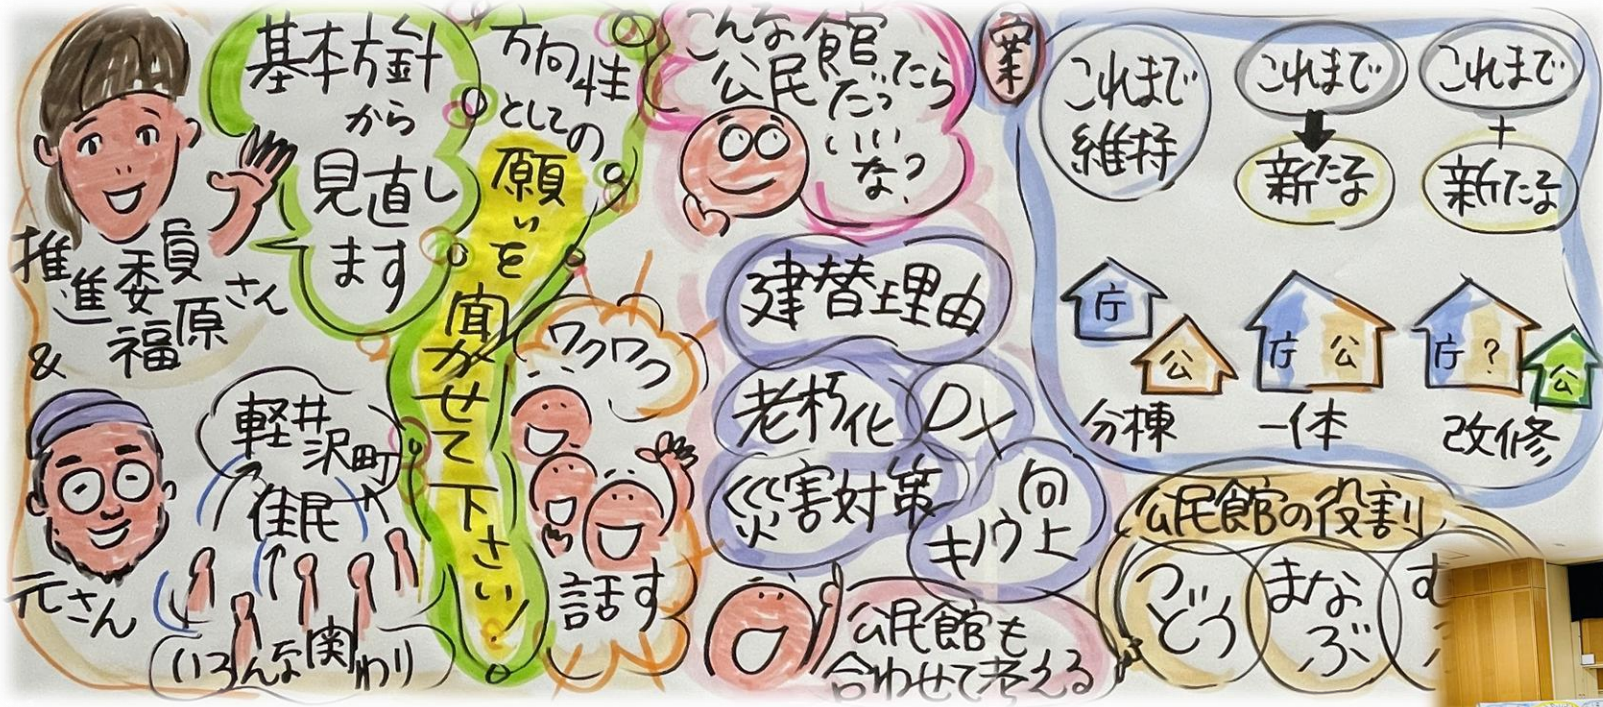 推進委員
福原さん
&
元さん
基本方針
から
見直し
ます
軽井沢町
住民
いろんな関わり
方向性
としての
願いを聞かせて下さい!
ワクワク
話す
こんな
公民館だったら
いいな?
建替え理由
老朽化
DX
災害対策
キノウ向上
公民館も
合わせて考える
案
これまで
維持
これまで
新たな
これまで
+
新たな
庁
公
分棟
庁 公
一体
庁?
公
改修
公民館の役割
つどう
まなぶ
む